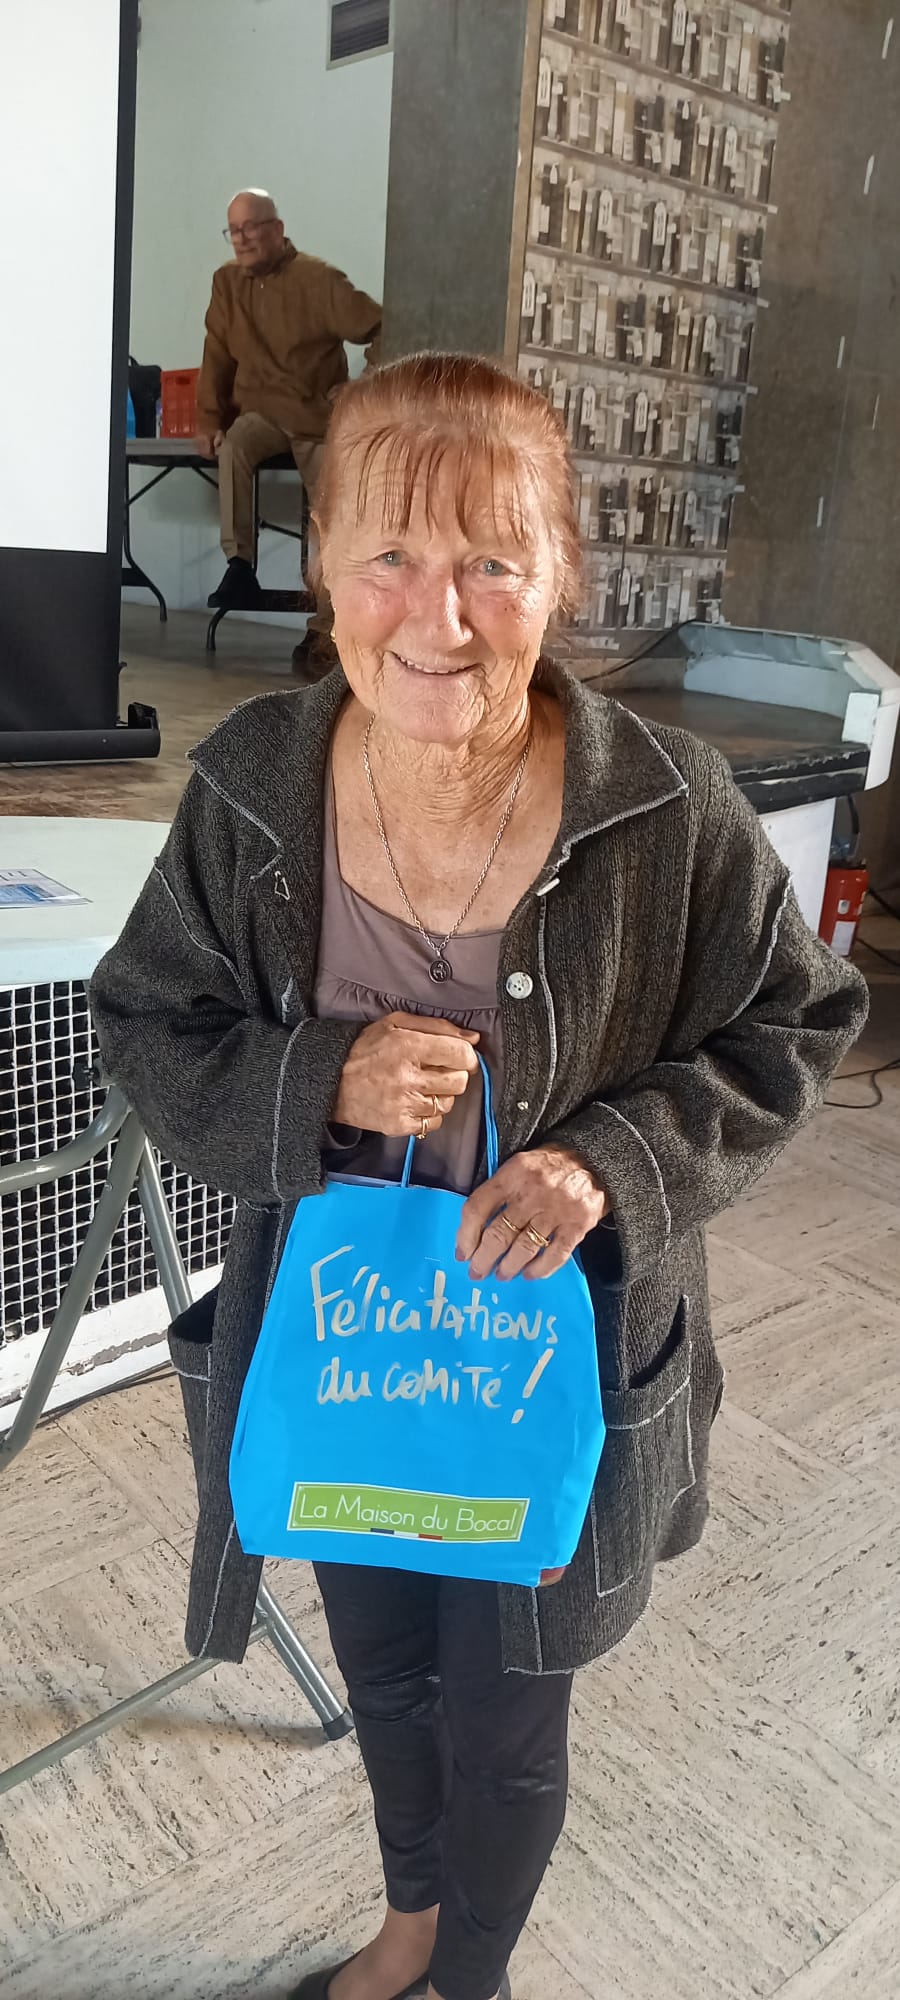 Félicitations
du comité !
La Maison du Bocal